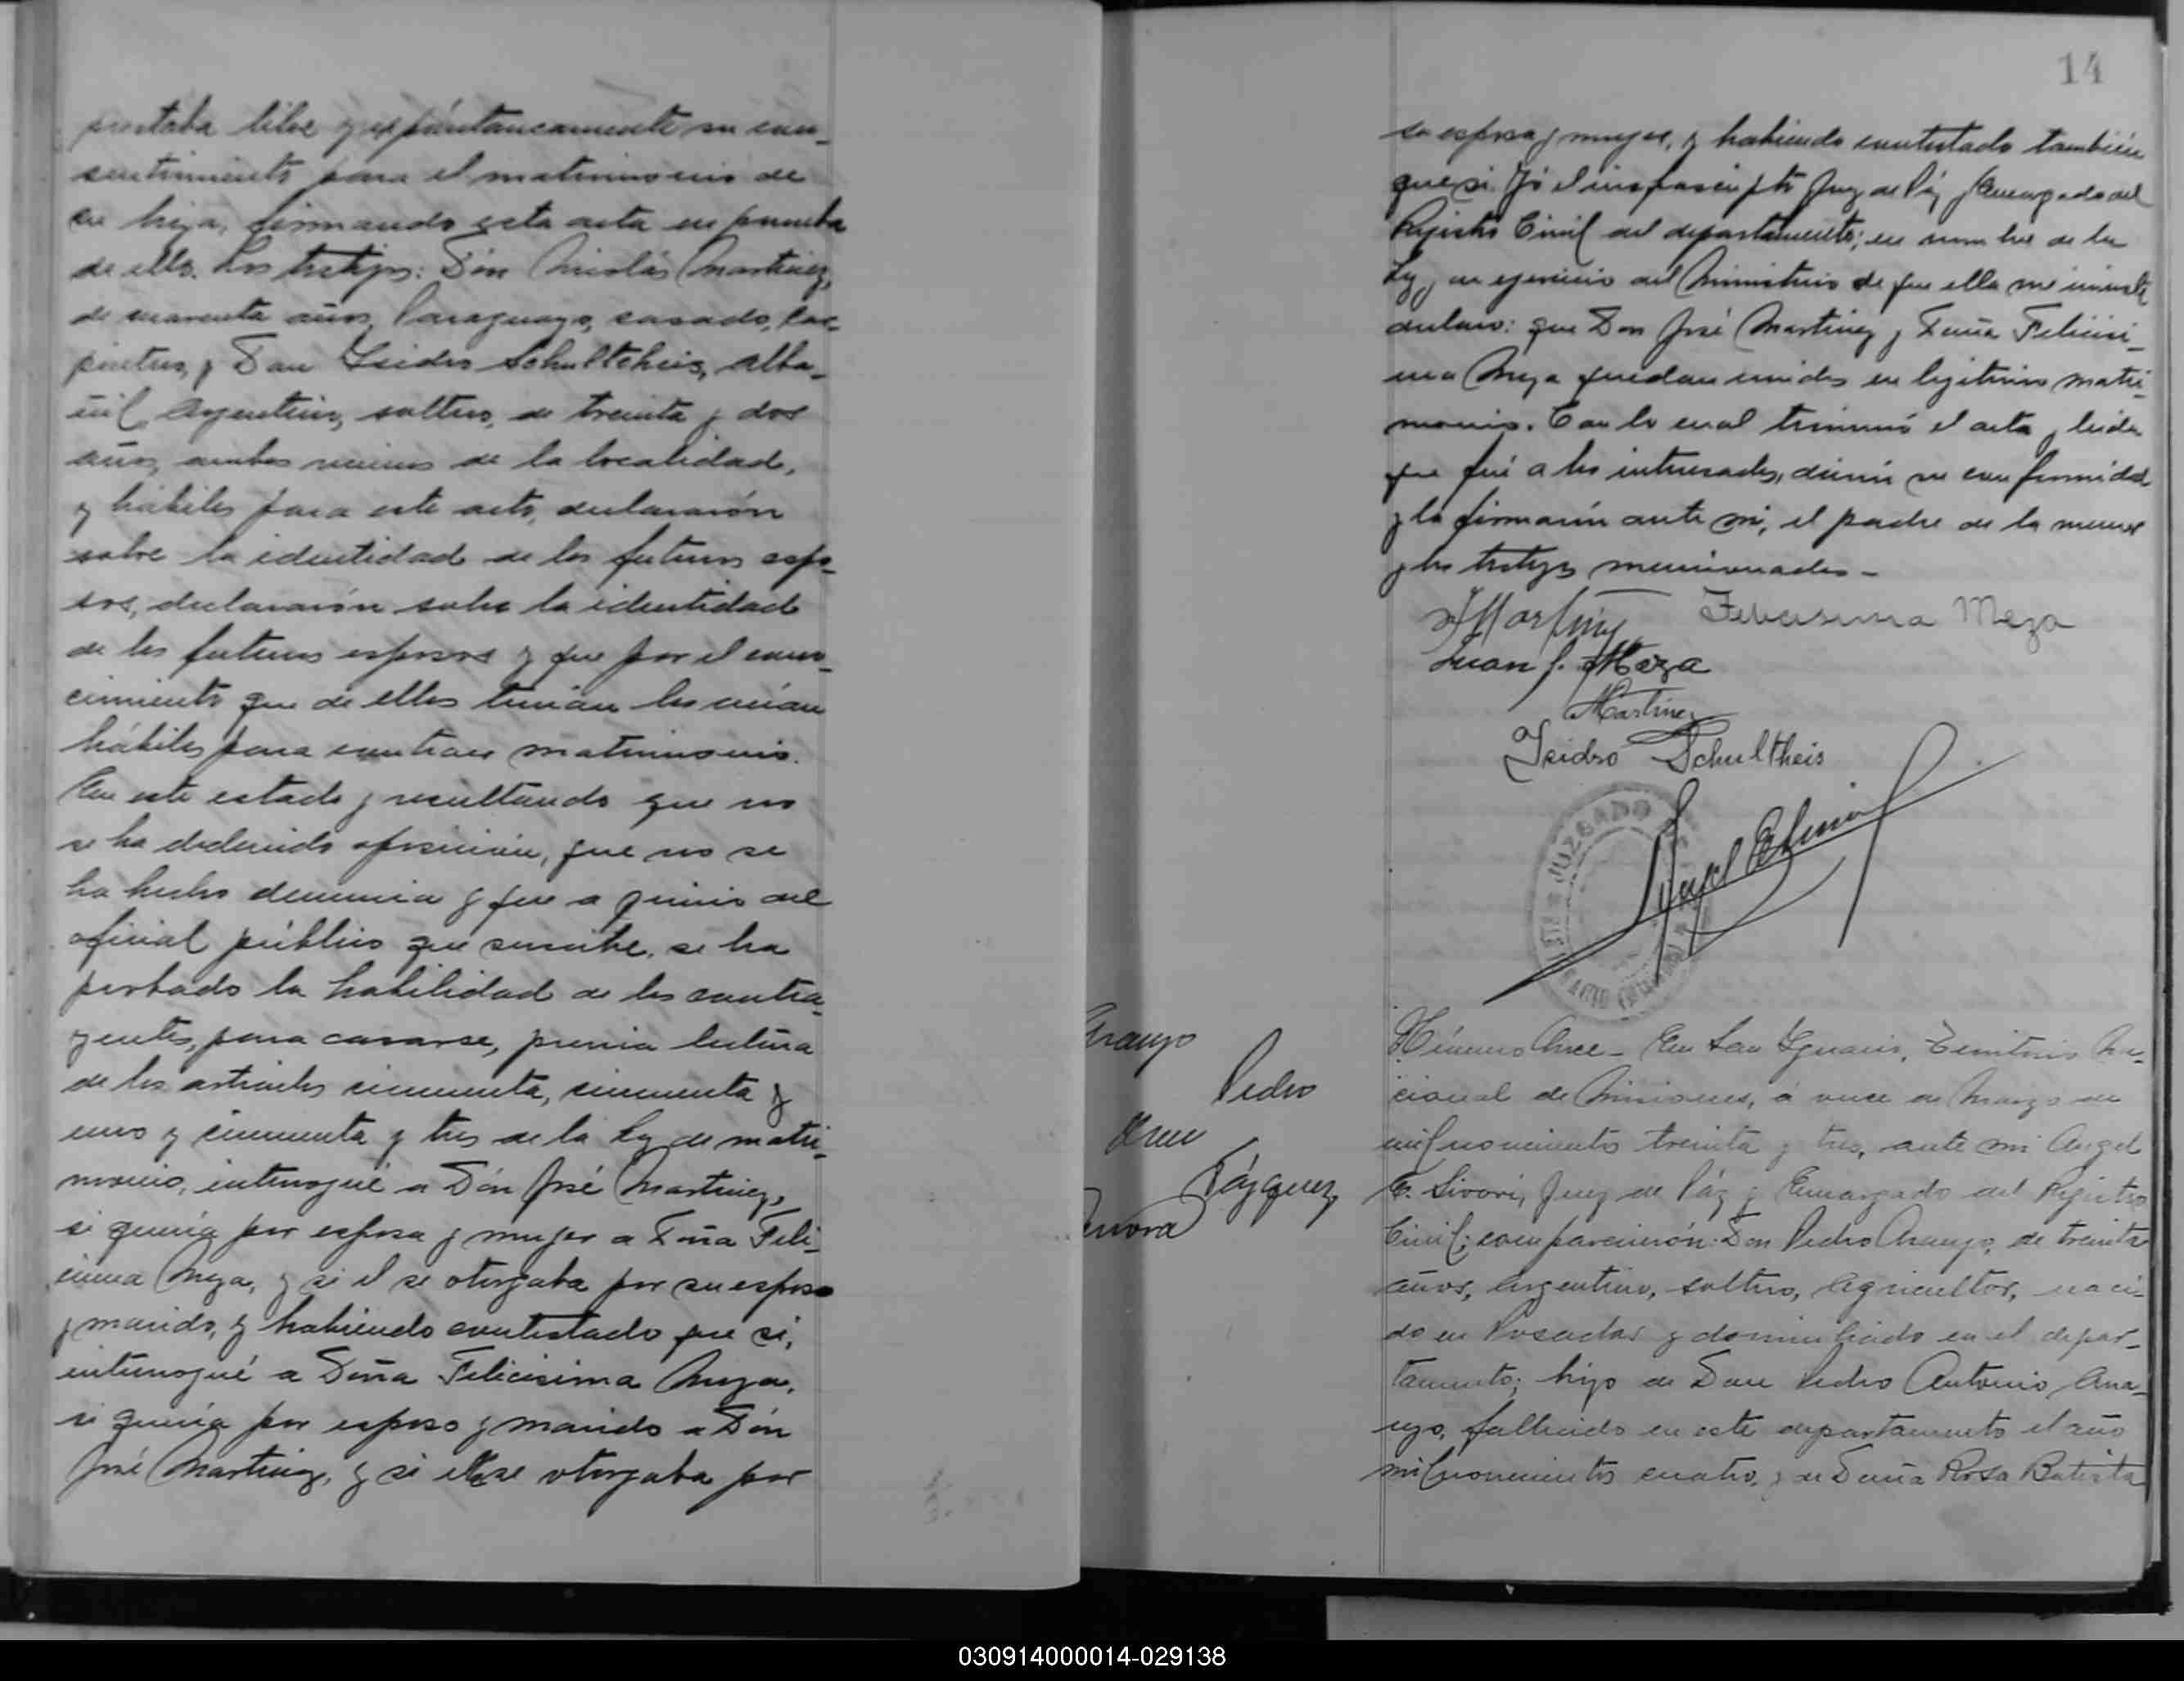 prestaba libre y espóntaneamente su con-
sentimiento para el matrimonio de
su hija, firmando esta acta en prueba
de ello. Los testigos: Don Nicolás Martinez,
de cuarenta años, Paraguayo, casado, car-
pintero, y Don Isidro Schultcheis, alba-
ñil, Argentino, soltero, de treinta y dos
años, ambos vecinos de la localidad,
y hábiles para este acto, declararón
sobre la identidad de los futuros espo-
sos, declararón sobre la identidad
de los futuros esposos y que por el cono-
cimiento que de ellos tenían los creían
hábiles para contraer matrimonio.
En este estado y resultando que no
se ha deducido oposición, que no se
ha hecho denuncia y que a juicio del
oficial público que suscribe, se ha
probado la habilidad de los contra-
yentes, para casarse, previa lectura
de los articulos cincuenta, cincuenta y
uno y cincuenta y tres de la Ley de matri-
monio, interrogué a Dón José Martinez,
si quería por esposa y mujer a Doña Feli-
cima Meza, y si el se otorgaba por su esposo
y marido, y habiendo contestado que si,
interrogué a Doña Felicisima Meza,
si quería por esposo y marido a Dón
José Martinez, y si ella se otorgaba por
14
su esposa y mujer, y habiendo contestado también
que si. Yó el infrascripto Juez de Páz y Encargado del
Registro Civil del departamento; en nombre de la
Ley, en ejercicio del Ministerio de que ella me inviste
declaro: que Don José Martinez y Doña Felicisi-
ma Meza quedan unidos en legitimo matri-
monio. Con lo cual terminó el acta y leida
que fué a los interesados, dieron su conformidad
y la firmarón ante mi, el padre de la menor
y los testigos mencionados-
J Martinez Felicisima Meza
Juan J. Meza
Martinez
Isidro Schultheis
JUZGADO
Angel
Araujo
Pedro
con
Vázquez
Número Once- En San Ignacio, Territorio Na-
cional de Misiones, á once de Marzo de
mil novecientos treinta y tres, ante mi Angel
E. Sivori, Juez de Páz y Encargado del Registro
Civil; comparecierón: Don Pedro Araujo, de treinta
años, Argentino, soltero, Agricultor, naci-
do en Posadas y domiciliado en el depar-
tamento; hijo de Don Pedro Antonio Ara-
ujo, fallecido en este departamento el año
mil novecientos cuatro, y de Doña Rosa Batista
030914000014-029138